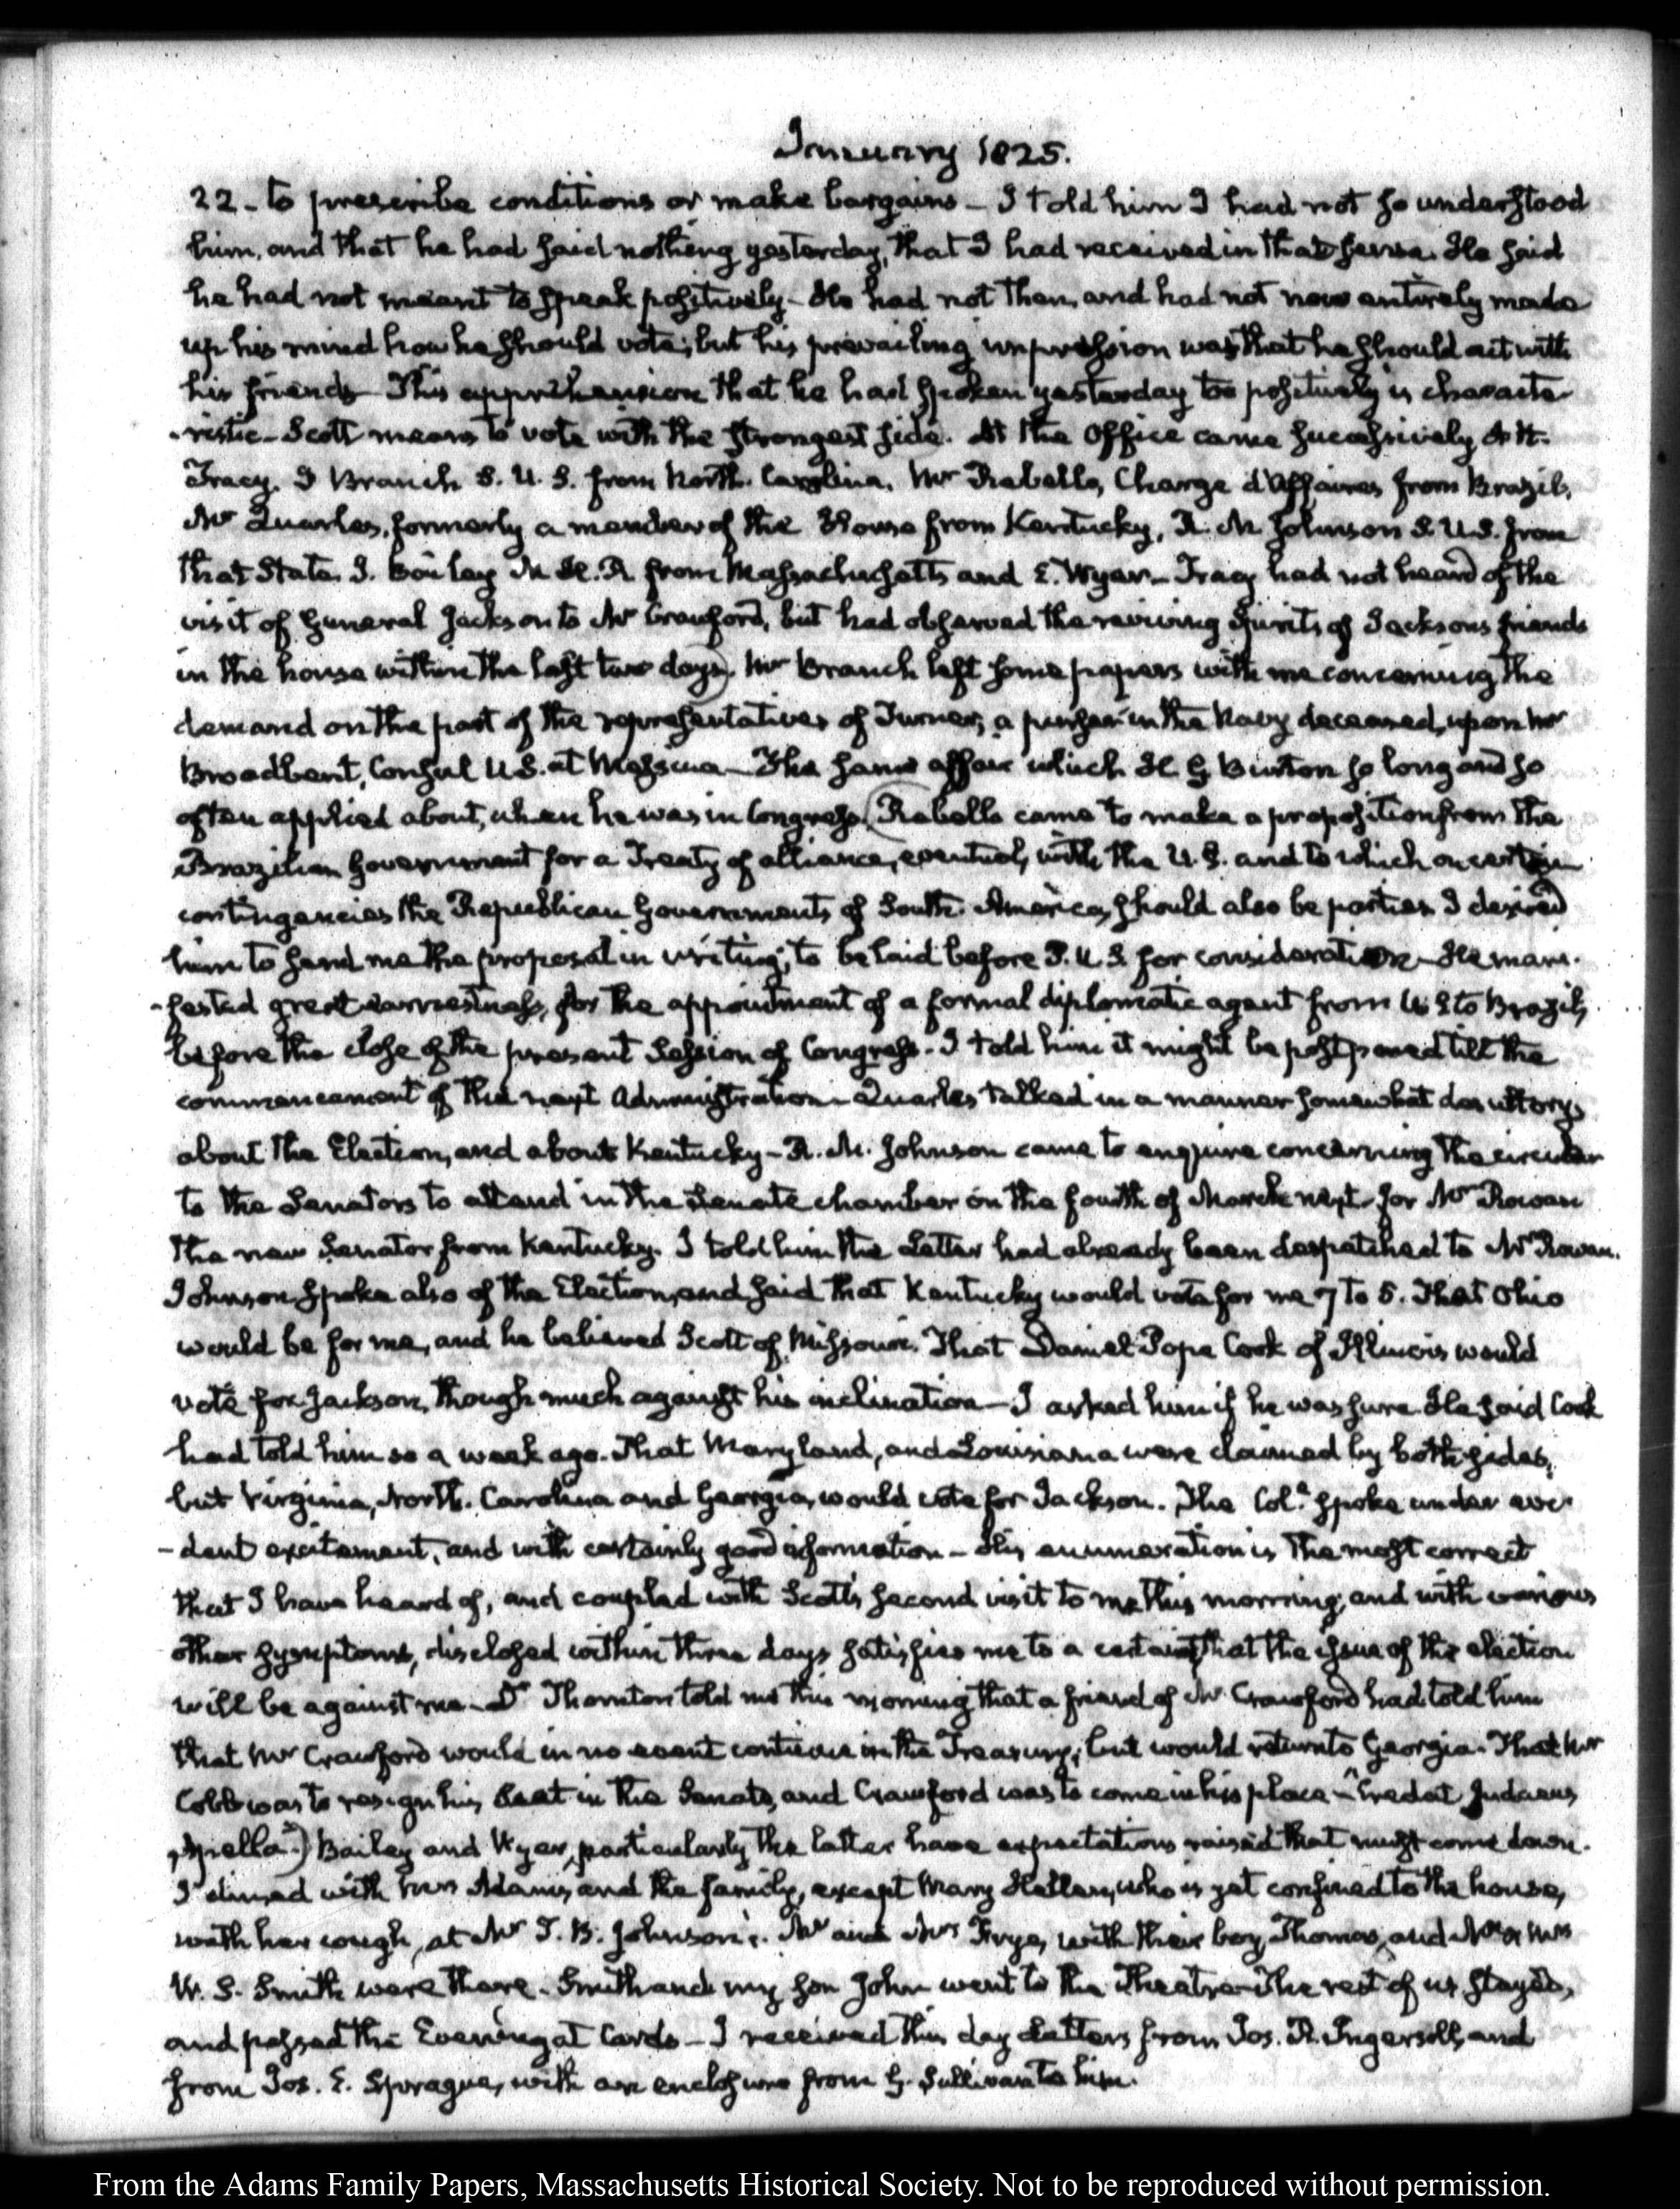 January 1825.
22 - to prescribe conditions or make bargains - I told him I had not so understood
him, and that he had said nothing yesterday, that I had received in that sense. He said
he had not meant to speak positively - He had not then, and had not now entirely made
up his mind how he should vote; but his prevailing impression was that he should act with
his friends - This apprehension that he had spoken yesterday too positively is characte-
-ristic - Scott means to vote with the strongest side. At the Office came successively
Tracy. J Branch S. U. S. from North Carolina, Mr Rebello, Chargé d'Affaires from Brazil,
Mr Quarles, formerly a member of the House from Kentucky, R. M. Johnson S. U.S. from
that State. J. Bailey M H. R from Massachusetts and E. Wyer - Tracy had not heard of the
visit of General Jackson to Mr Crawford, but had observed the reviving spirits of Jacksons friends
in the house within the last two days. Mr Branch left some papers with me concerning the
demand on the part of the representatives of Turner, a purser in the Navy deceased, upon Mr
Broadbent, Consul U.S. at Messina - The same affair which H G Burton so long and so
often applied about, when he was in Congress. (Rebello came to make a proposition from the
Brazilian Government for a Treaty of alliance, eventual, with the U.S. and to which on certain
contingencies the Republican Governments of South America, should also be parties. I desired
him to send me the proposal in writing, to be laid before P. U. S for consideration - He mani-
-fested great earnestness, for the appointment of a formal diplomatic agent from U S to Brazil,
before the close of the present Session of Congress - I told him it might be postponed till the
commencement of the next Administration - Quarles talked in a manner somewhat desultory,
about the Election, and about Kentucky - R. M. Johnson came to enquire concerning the circular
to the Senators to attend in the Senate chamber on the fourth of March next for Mr Rowan
the new Senator from Kentucky. I told him the Letter had already been despatched to Mr Rowan.
Johnson spoke also of the Election, and said that Kentucky would vote for me 7 to 5. That Ohio
would be for me, and he believed Scott of Missouri. That Daniel Pope Cook of Illinois would
vote for Jackson, though much against his inclination - I asked him if he was sure. He said Cook
had told him so a week ago. That Maryland, and Louisiana were claimed by both sides,
but Virginia, North Carolina and Georgia, would vote for Jackson. The Col. spoke under evi-
-dent excitement, and with certainly good information - His enumeration is the most correct
that I have heard of, and coupled with Scott's second visit to me this morning, and with various
other symptoms, disclosed within three days satisfies me to a certainty that the issue of the election
will be against me - Dr Thornton told me this morning that a friend of Mr Crawford had told him
that Mr Crawford would in no event continue in the Treasury; but would return to Georgia - That Mr
Cobb was to resign his Seat in the Senate, and Crawford was to come in his place - "Credat Judaeus
Apella") Bailey and Wyer, particularly the latter have expectations raised that must come down.
I dined with Mrs Adams, and the family, except Mary Hellen, who is yet confined to the house,
with her cough, at Mr T. B. Johnson's. Mr and Mrs Frye, with their boy, Thomas, and Mr & Mrs
W. S. Smith were there. Smith and my Son John went to the Theatre - The rest of us stayed,
and passed the Evening at Cards - I received this day Letters from Jos. R. Ingersoll, and
from Jos. E. Sprague, with an enclosure from G. Sullivan to him.
From the Adams Family Papers, Massachusetts Historical Society. Not to be reproduced without permission.